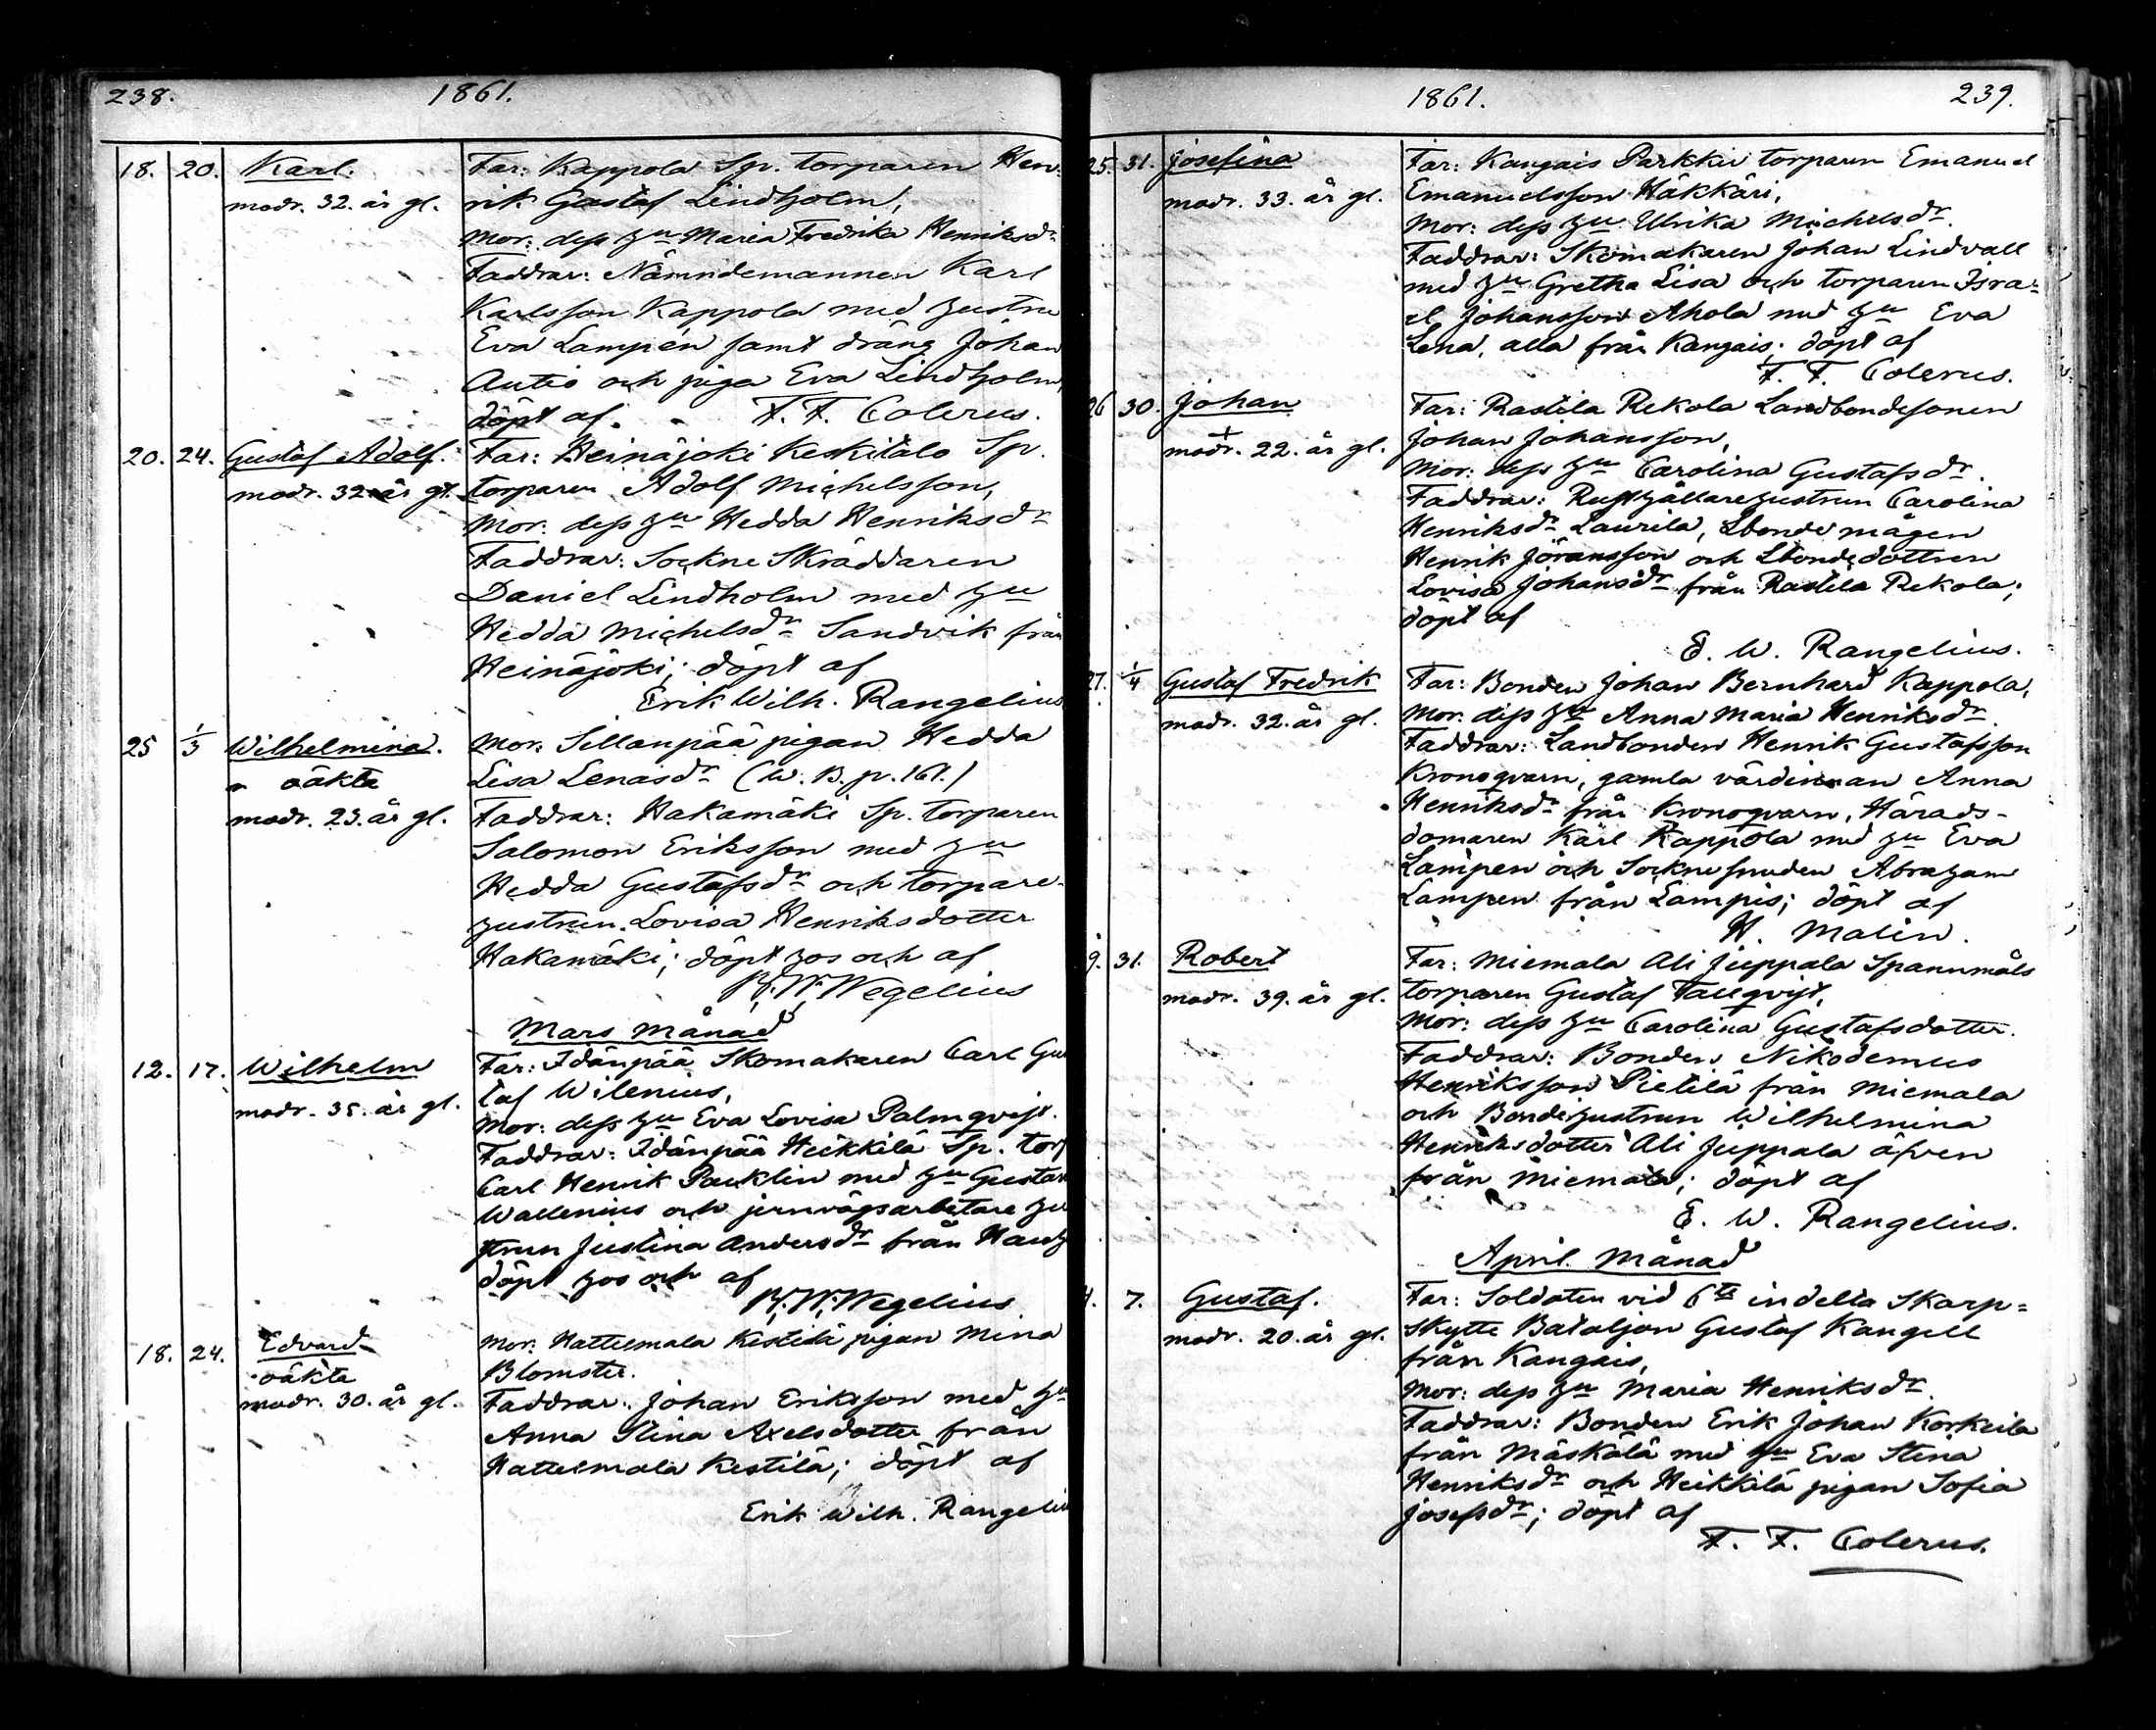 238. 1861.
18. 20. Karl. Far: Kappola Sp. torparen Hen-
modr. 32. år gl. rik Gustaf Lindholm,
Mor: dess hu Maria Fredrika Henriksdr
Faddrar: Nämndemannen Karl
Karlsson Kappola med hustru
Eva Lampén samt dräng Johan
Autio och piga Eva Lindholm,
döpt af. F. F. Colerus.
20. 24. Gustaf Adolf. Far: Heinäjoki Keskitalo Sp.
modr. 32 år gl. torparen Adolf Michelsson,
Mor: dess hu Hedda Henriksdr
Faddrar: Sockne Skräddaren
Daniel Lindholm med hu
Hedda Michelsdr Sandvik från
Heinäjoki; döpt af
Erik Wilh. Rangelius
25 1/3 Wilhelmina. Mor: Sillanpää pigan Hedda
oäkta Lisa Lenasdr (W. B. p. 161.)
modr. 23. år gl. Faddrar: Hakamäki Sp. torparen
Salomon Eriksson med hu
Hedda Gustafsdr och torpare-
hustrun Lovisa Henriksdotter
Hakamäki; döpt hos och af
Wegelius
Mars Månad
12. 17. Wilhelm Far: Idänpää Skomakaren Carl Gus
modr. 35. år gl. taf Wilenius,
Mor: dess hu Eva Lovisa Palmqvist.
Faddrar: Idänpää Heikkilä Sp. torp
Carl Henrik Packlin med hu Gustava
Wallenius och jernvägsarbetare hu
strun Justina Andersdr från
döpt hos och af
Wegelius
18. 24. Edvard Mor: Hattelmala Kestilä pigan Mina
oäkta Blomster.
modr. 30. år gl. Faddrar: Johan Eriksson med hu
Anna Stina Axelsdotter från
Hattelmala Kestilä; döpt af
Erik Wilh. Rangeliu
1861. 239.
25. 31. Josefina Far: Kangais Parkki torparen Emanuel
modr. 33. år gl. Emanuelsson Häkkäri,
Mor: dess hu Ulrika Michelsdr.
Faddrar: Skomakaren Johan Lindvall
med hu Gretha Lisa och torparen Isra-
el Johansson Ahola med hu Eva
Lena, alla från Kangais; döpt af
F. F. Colerus.
26 30. Johan Far: Rastila Rekola Landbondesonen
+ Johan Johansson,
modr. 22. år gl. Mor: dess hu Carolina Gustafsdr.
Faddrar: Rusthållarehustrun Carolina
Henriksdr Laurila, Lbonde mågen
Henrik Jöransson och Lbondedottren
Lovisa Johansdr från Rastila Rekola;
döpt af
E. W. Rangelius.
27. 1/4 Gustaf Fredrik Far: Bonden Johan Bernhard Kappola,
modr. 32. år gl. Mor: dess hu Anna Maria Henriksdr.
Faddrar: Landbonden Henrik Gustafsson
Kronoqvarn, gamla värdinnan Anna
Henriksdr från Kronoqvarn, Härads-
domaren Karl Kappola med hu Eva
Lampen och Socknesmeden Abraham
Lampen från Lampis; döpt af
H. Malin.
9. 31. Robert Far: Miemala Ali Juppala Spannmåls
modr. 39. år gl. torparen Gustaf Tallqvist,
Mor: dess hu Carolina Gustafsdotter.
Faddrar: Bonden Nikodemus
Henriksson Pietilä från Miemala
och Bondehustrun Wilhelmina
Henriksdotter Ali Juppala äfven
från Miemala; döpt af
E. W. Rangelius.
April Månad
4. 7. Gustaf. Far: Soldaten vid 6te indelta Skarp=
modr. 20. år gl. skytte Bataljon Gustaf Kangell
från Kangais,
Mor: dess hu Maria Henriksdr.
Faddrar: Bonden Erik Johan Korkeila
från Mäskälä med hu Eva Stina
Henriksdr och Heikkilä pigan Sofia
Josefsdr; döpt af
F. F. Colerus.